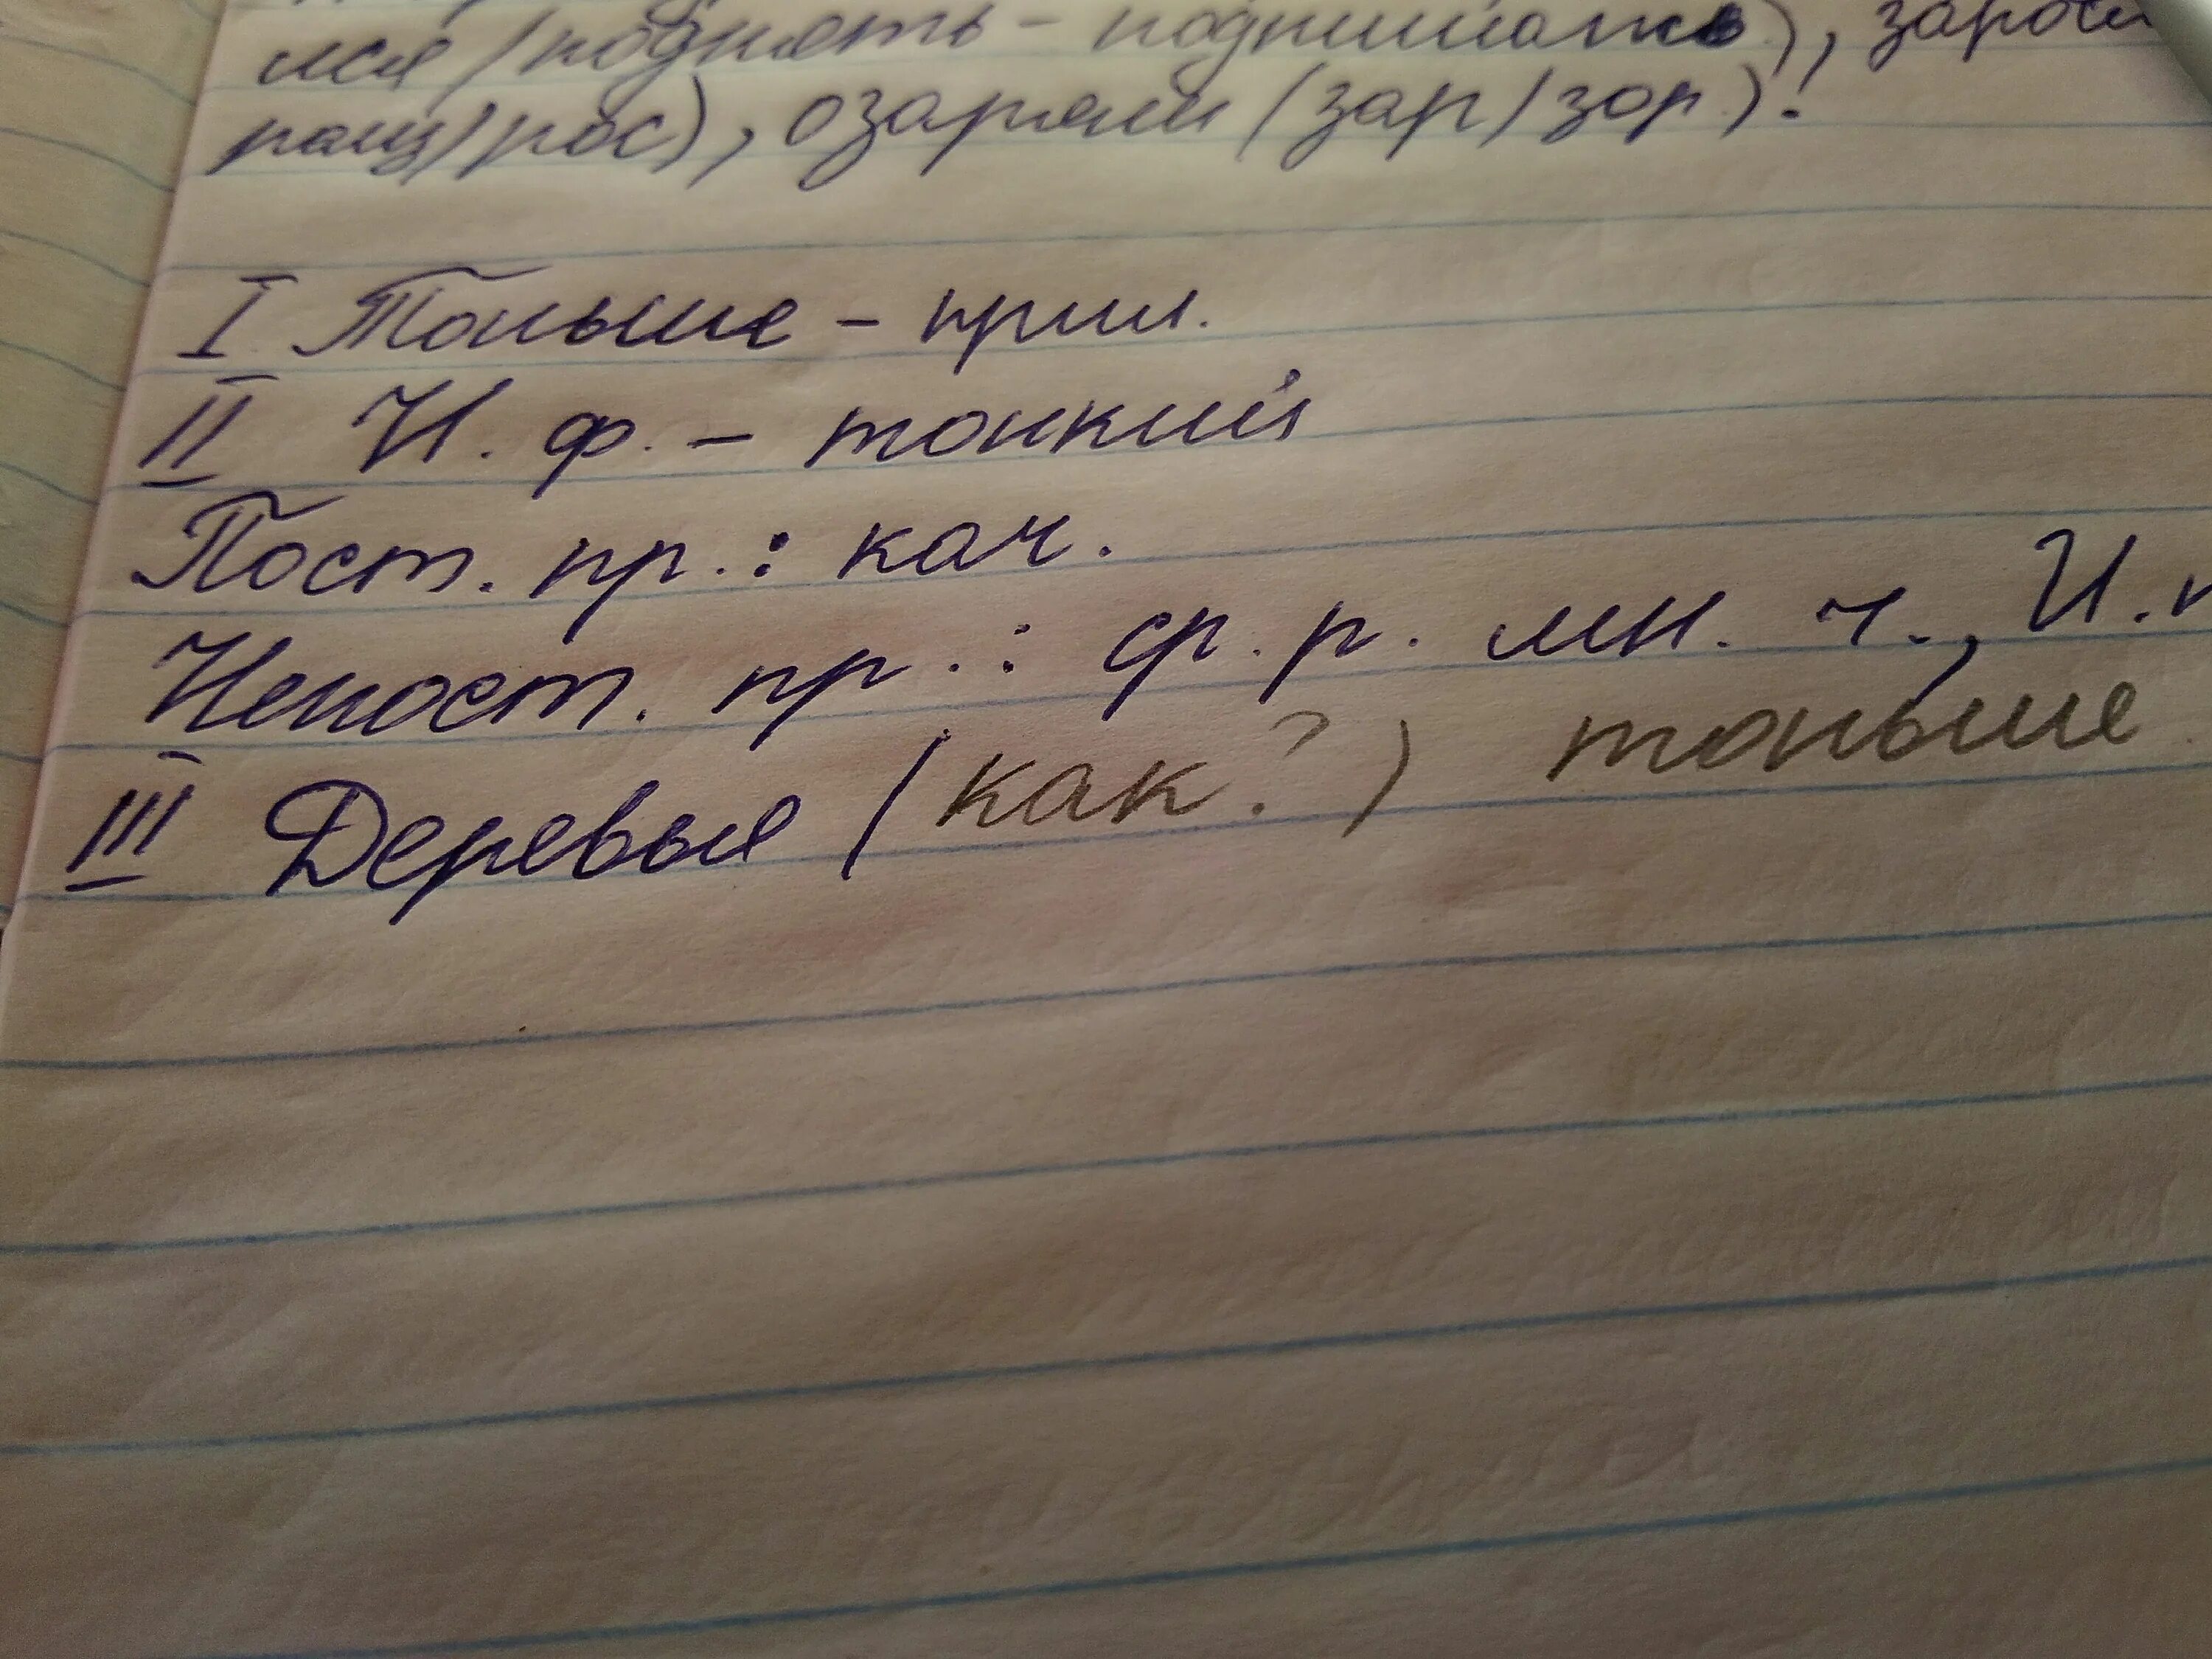 лся (поднять - поднимать), заросли
ращ/рос), озаряли (зар/зор)!
I Тоньше - прил.
II Н. ф. - тонкий
Пост. пр.: кач.
Непост. пр.: ср. р. мн. ч., И.
III Деревья (как?) тоньше